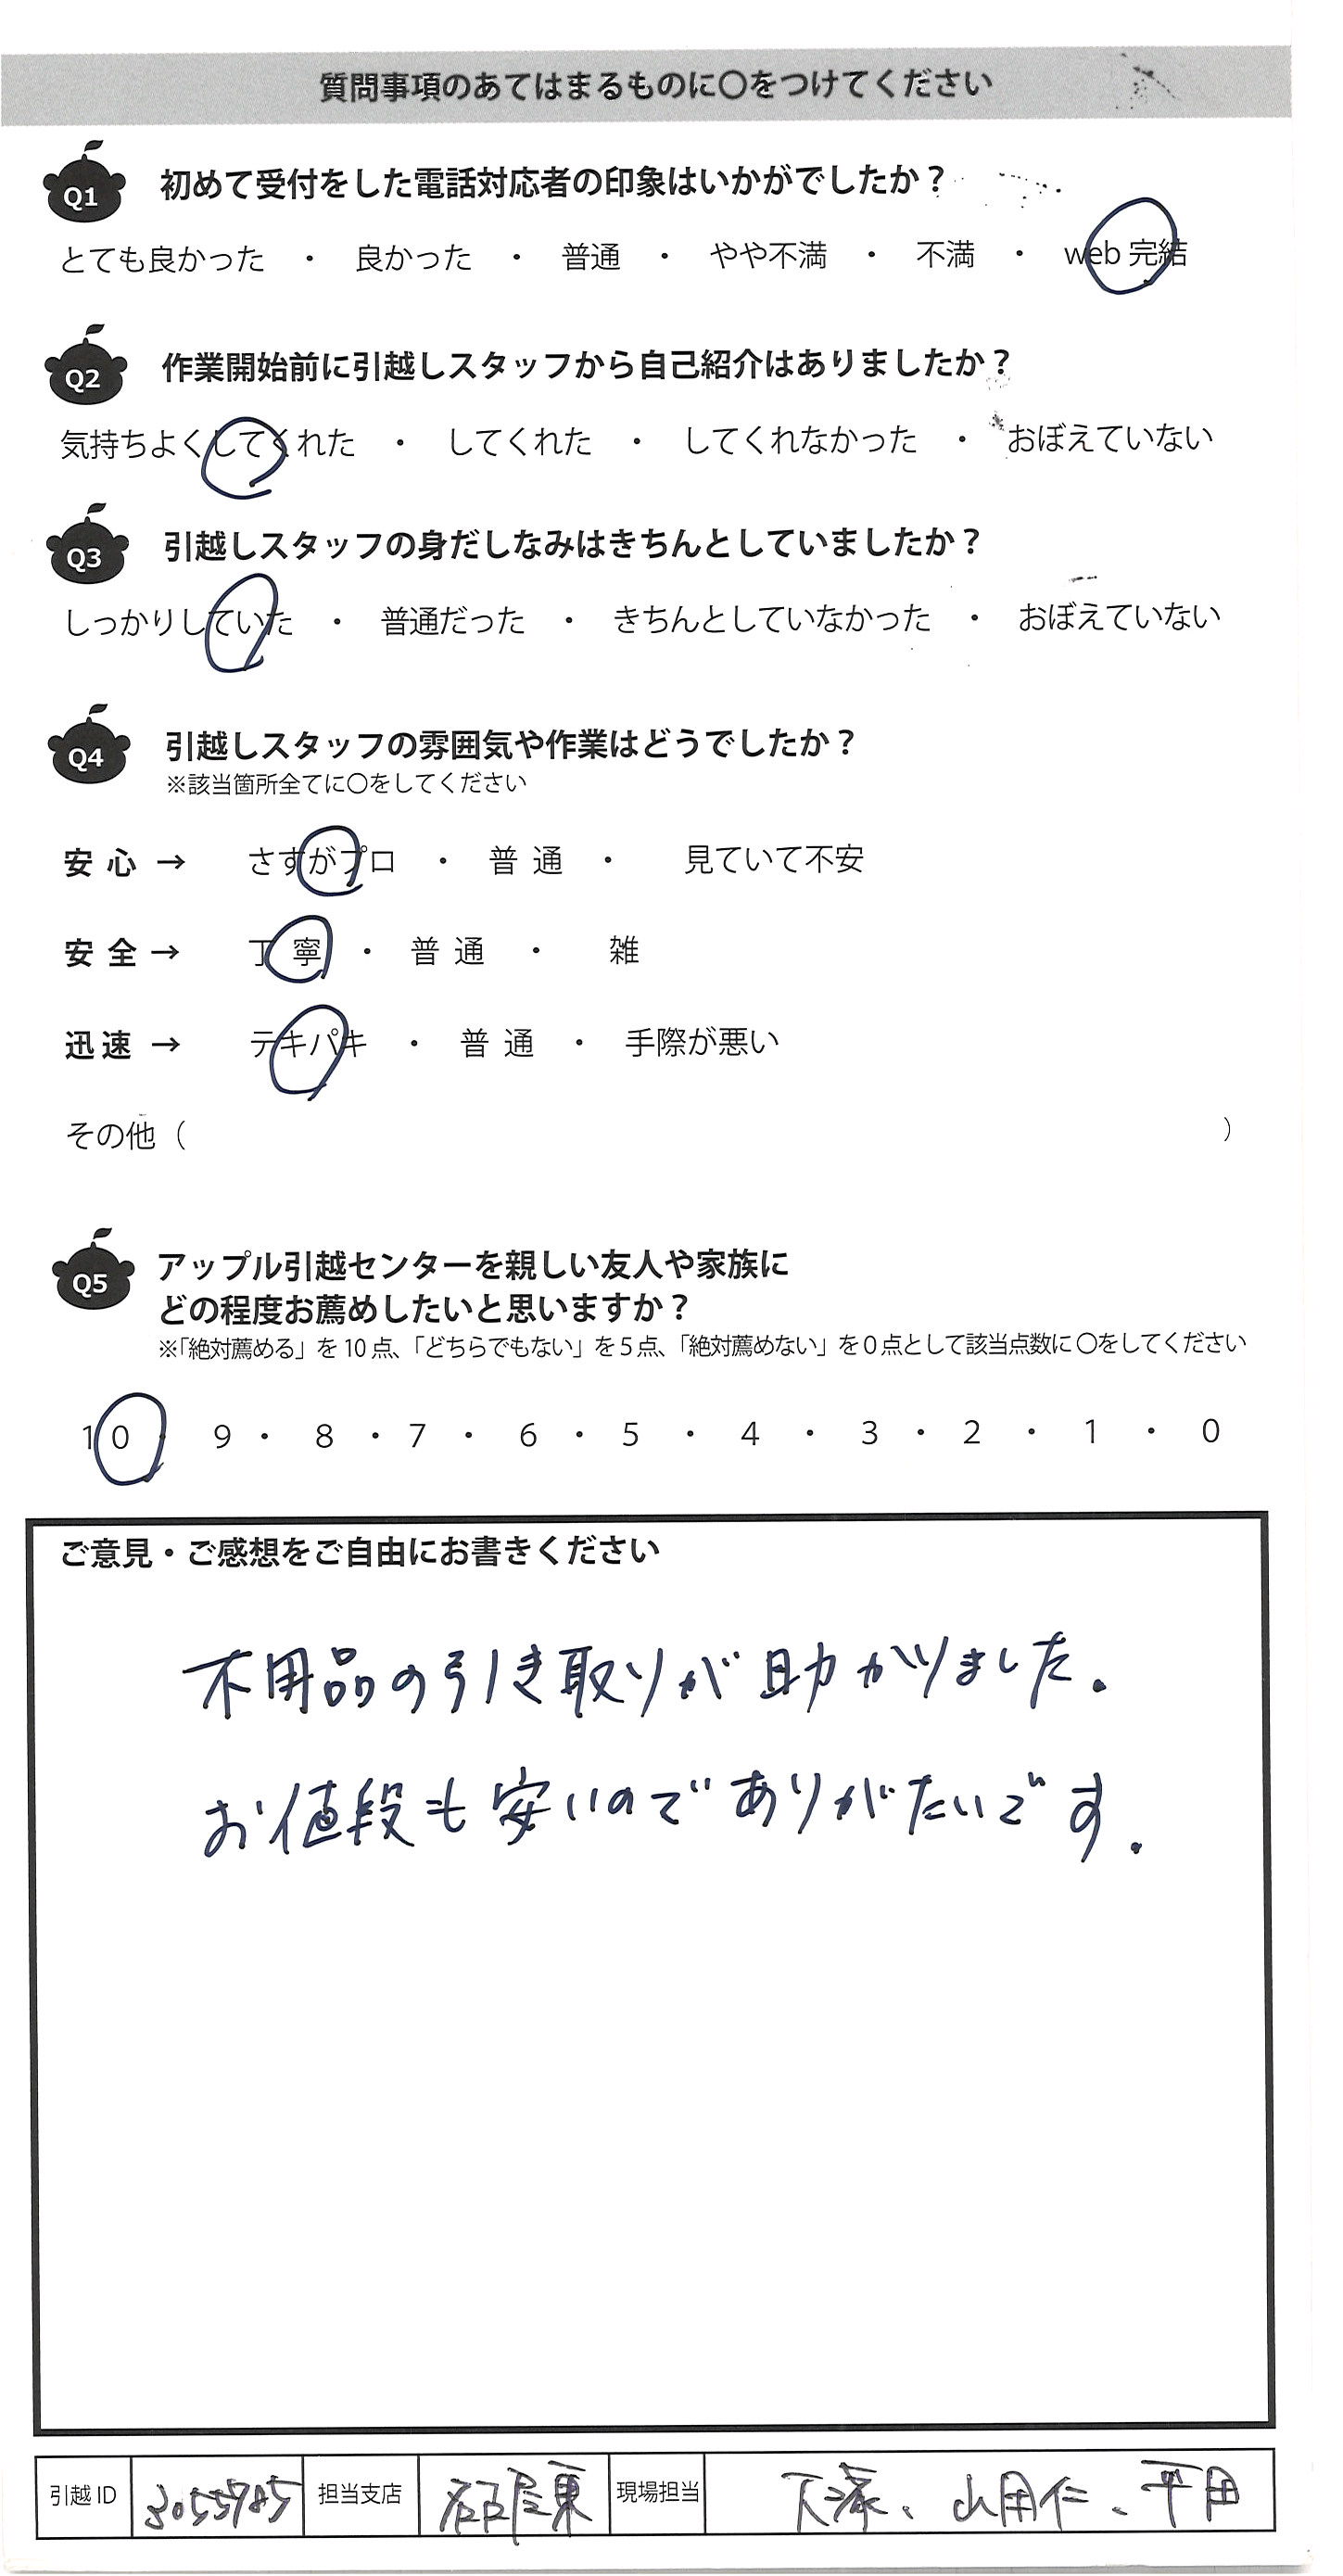 質問事項のあてはまるものに〇をつけてください
Q1 初めて受付をした電話対応者の印象はいかがでしたか？
とても良かった ・ 良かった ・ 普通 ・ やや不満 ・ 不満 ・ web 完結
Q2 作業開始前に引越しスタッフから自己紹介はありましたか？
気持ちよくしてくれた ・ してくれた ・ してくれなかった ・ おぼえていない
Q3 引越しスタッフの身だしなみはきちんとしていましたか？
しっかりしていた ・ 普通だった ・ きちんとしていなかった ・ おぼえていない
Q4 引越しスタッフの雰囲気や作業はどうでしたか？
※該当箇所全てに〇をしてください
安心 → さすがプロ ・ 普通 ・ 見ていて不安
安全 → 丁寧 ・ 普通 ・ 雑
迅速 → テキパキ ・ 普通 ・ 手際が悪い
その他（ ）
Q5 アップル引越センターを親しい友人や家族に
どの程度お薦めしたいと思いますか？
※「絶対薦める」を10点、「どちらでもない」を5点、「絶対薦めない」を0点として該当点数に〇をしてください
10 ・ 9 ・ 8 ・ 7 ・ 6 ・ 5 ・ 4 ・ 3 ・ 2 ・ 1 ・ 0
ご意見・ご感想をご自由にお書きください
不用品の引き取りが助かりました。
お値段も安いのでありがたいです。
引越ID 3055985 担当支店 名古屋東 現場担当 平田